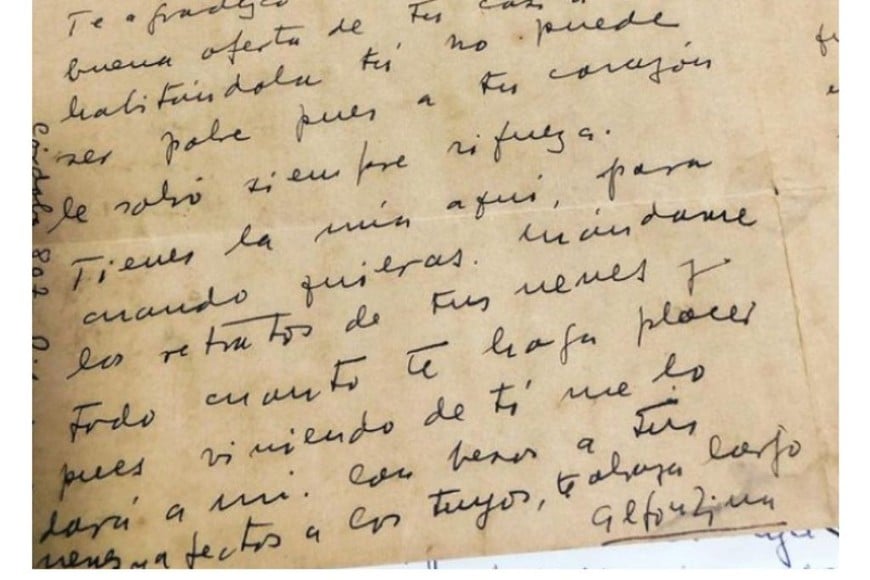 Te agradezco
buena oferta de tu casa
habitándola tú no puede
ser pobre pues a tu corazón
le sobró siempre riqueza.
Tienes la mía aquí, para
cuando quieras. Mándame
los retratos de tus nenes y
todo cuanto te haga placer
pues viniendo de tí me lo
dará a mi. Con besos a tus
nenes, afectos a los tuyos, te abraza largo
Alfonsina
Córdoba 807